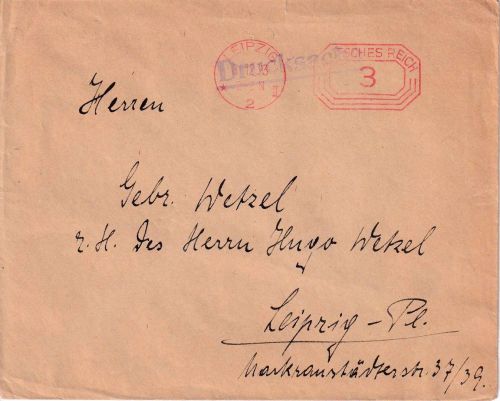 LEIPZIG
2
Drucksache
DEUTSCHES REICH
3
Herren
Gebr. Wetzel
z. H. des Herrn Hugo Wetzel
Leipzig - Pl.
Markranstädterstr. 37/39.